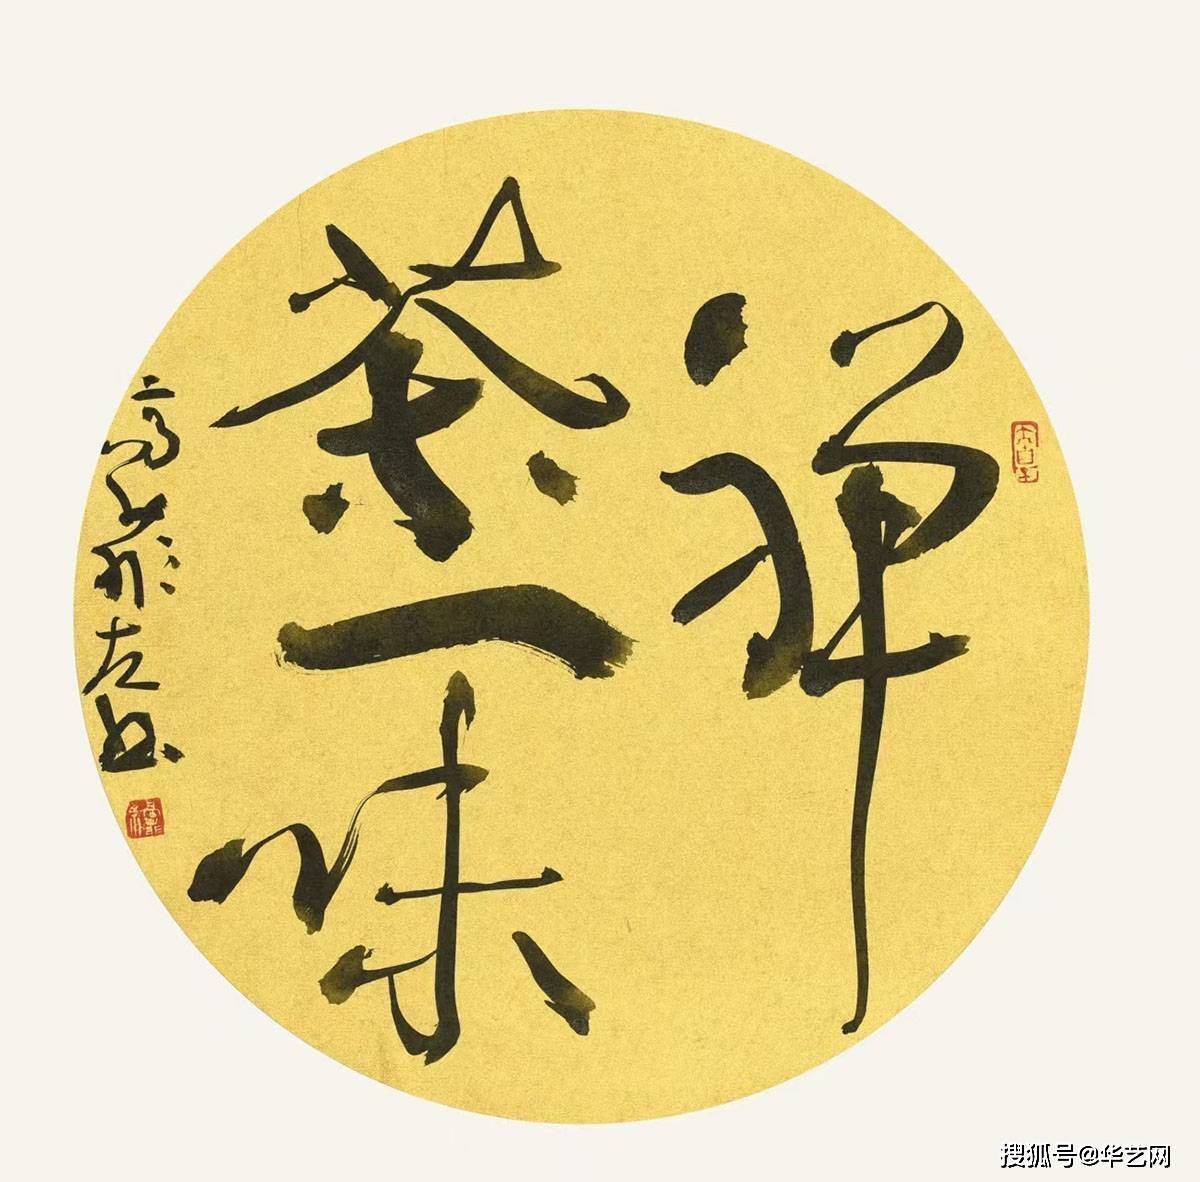 禅
茶一味
高 左书
搜狐号@华艺网